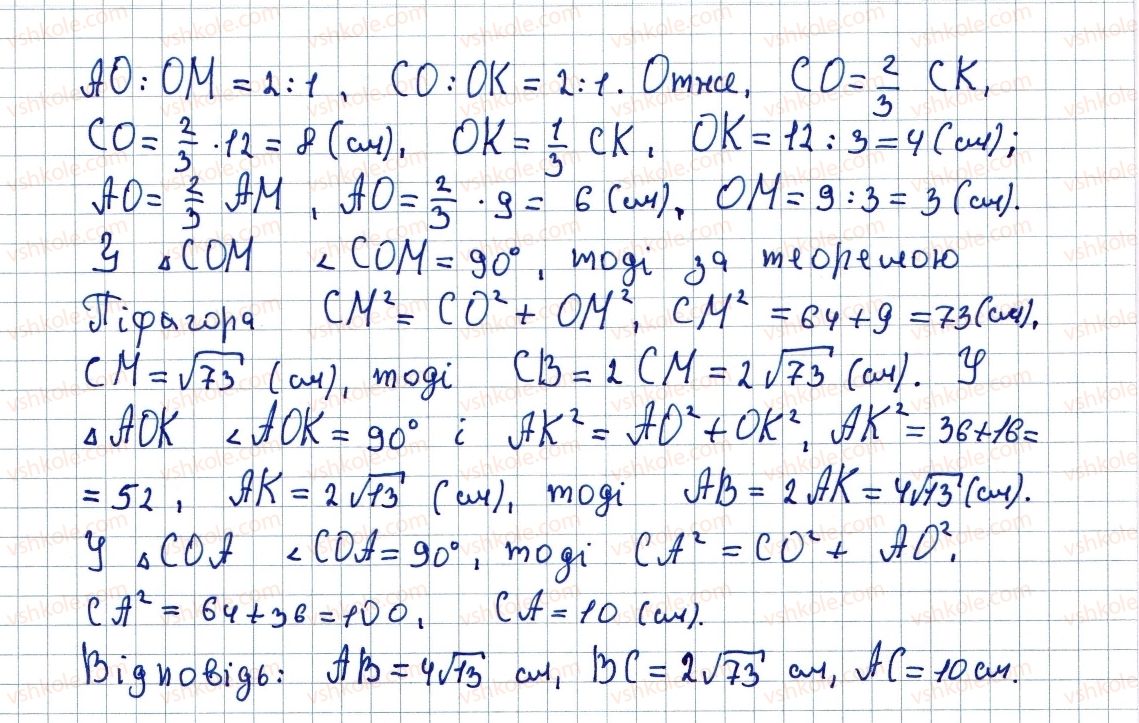 AO : OM = 2 : 1, CO : OK = 2 : 1. Отже, CO = 2/3 CK,
CO = 2/3 · 12 = 8 (см), OK = 1/3 CK, OK = 12 : 3 = 4 (см);
AO = 2/3 AM, AO = 2/3 · 9 = 6 (см), OM = 9 : 3 = 3 (см).
У △COM ∠COM = 90°, тоді за теоремою
Піфагора CM² = CO² + OM², CM² = 64 + 9 = 73 (см),
CM = √73 (см), тоді CB = 2 CM = 2√73 (см). У
△AOK ∠AOK = 90° і AK² = AO² + OK², AK² = 36 + 16 =
= 52, AK = 2√13 (см), тоді AB = 2 AK = 4√13 (см).
У △COA ∠COA = 90°, тоді CA² = CO² + AO²,
CA² = 64 + 36 = 100, CA = 10 (см).
Відповідь: AB = 4√13 см, BC = 2√73 см, AC = 10 см.